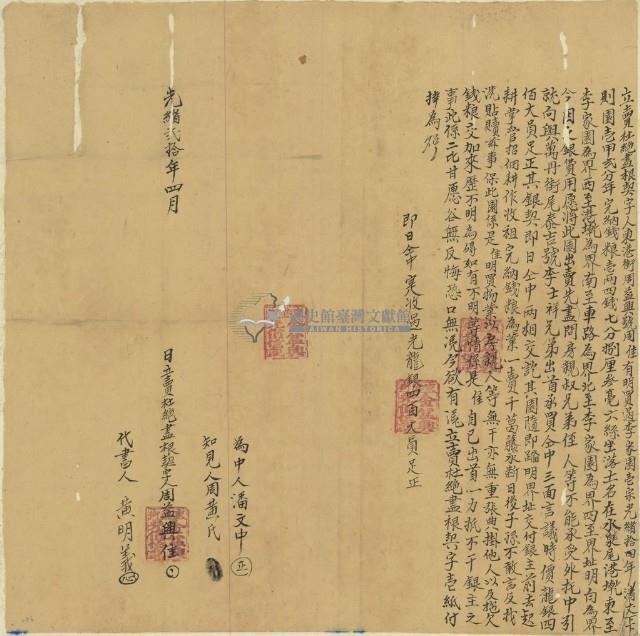 立賣杜絕盡根契字人東港街周益興號周佳有明買過李家園壹宗光緒拾四年清丈下
則園壹甲弍分年完納錢粮壹両四錢七分捌厘參毫六絲坐落土名在水泉尾港墘東至
李家園為界西至港墘為界南至車路為界北至李家園為界四至界址明白為界
今因乏銀費用愿將此園出賣先盡問房親叔兄弟侄人等不能承受外托中引
就向與萬丹街尾泰吉號李士祥兄弟出首承買仝中三面言議時價龍銀四
佰大員足正其銀契即日仝中両相交訖其園隨即踏明界址交付銀主前去起
耕掌管招佃耕作收租完納錢粮為業一賣千葛藤永斷日後子孫不敢言及找
洗貼贖等事保此園係是佳明買物業與房親人等無干亦無重張典掛他人以及拖欠
錢粮交加來歷不明為碍如有不明等情係是佳自己出首一力抵不干銀主之
事此係二比甘愿各無反悔恐口無憑今欲有憑立賣杜絕盡根契字壹紙付
執為炤
即日仝中實收過光龍銀四百大員足正
為中人潘文中
知見人周黃氏
日立賣杜絕盡根契字人周益興佳
代書人黃明義
光緒弍拾年四月
國史館臺灣文獻館
TAIWAN HISTORICA